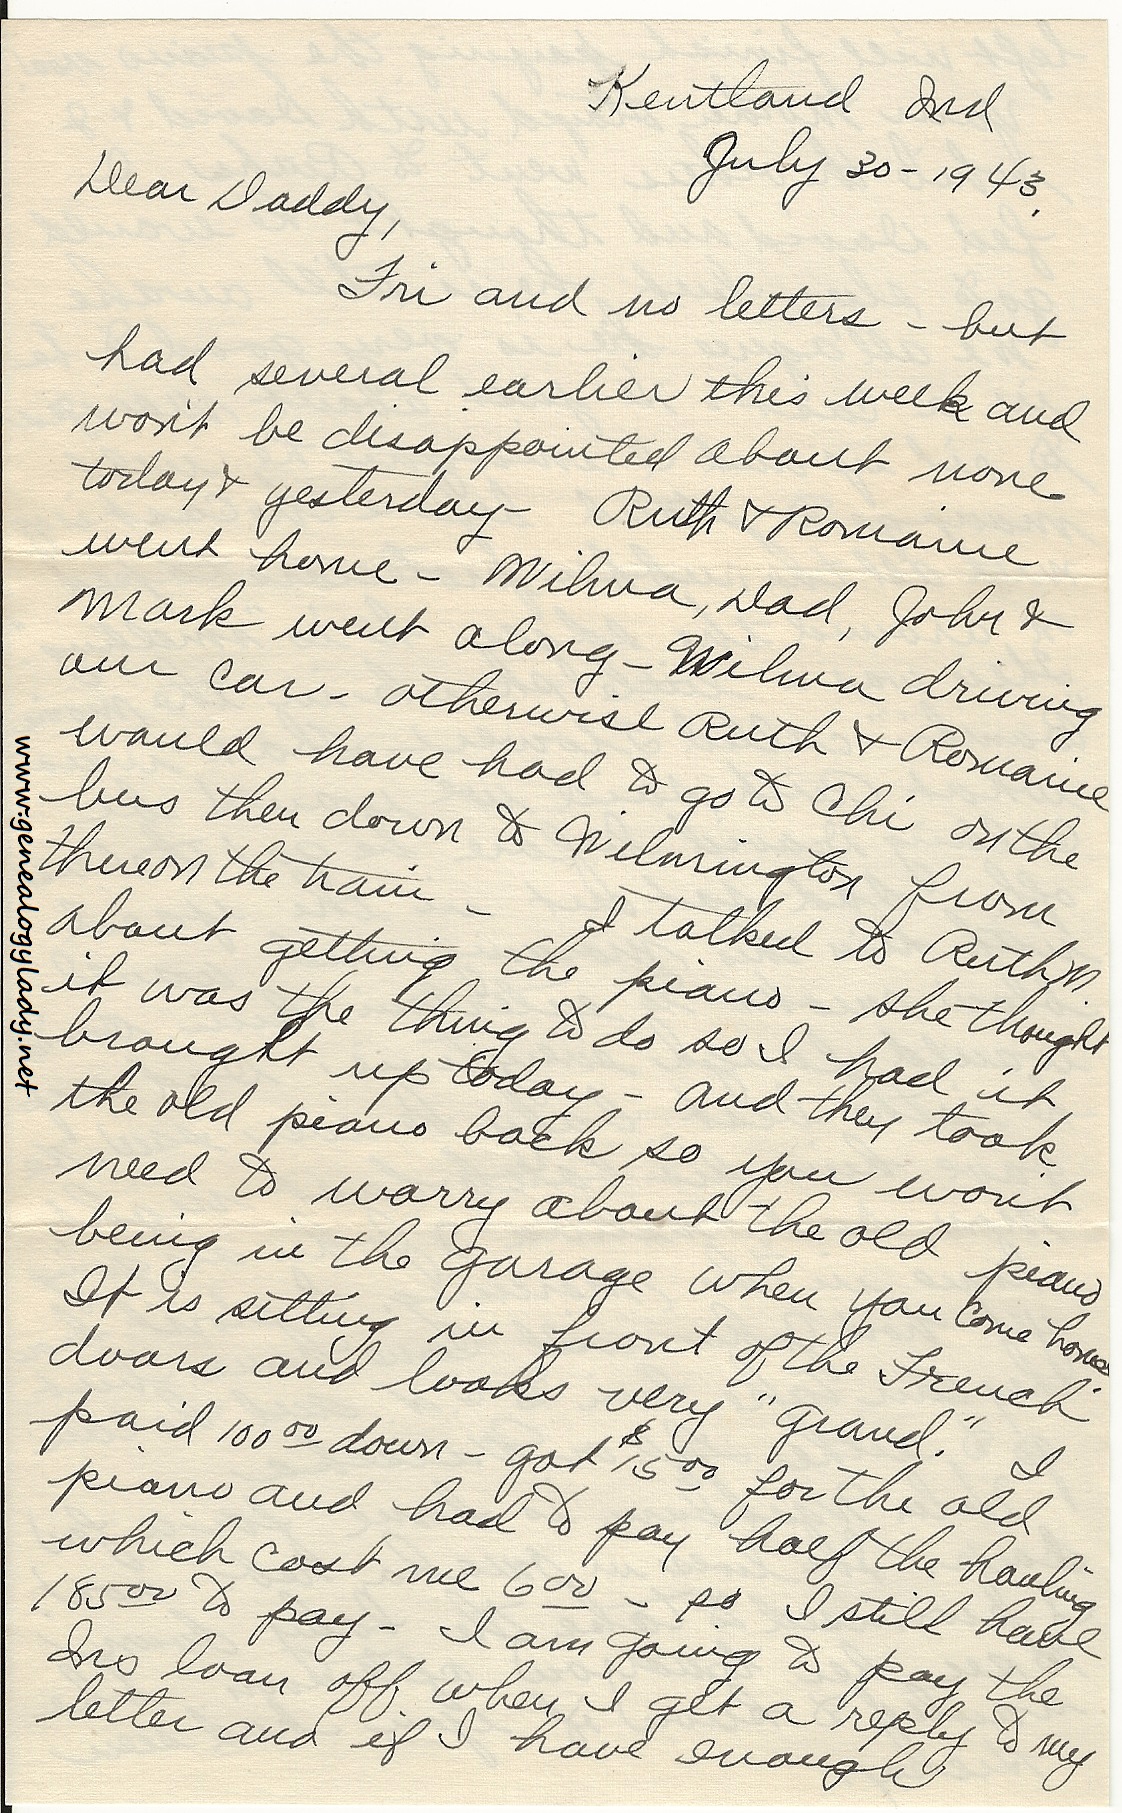 Kentland Ind
July 30 - 1943.
Dear Daddy,
Fri and no letters - but
had several earlier this week and
won't be disappointed about none
today & yesterday - Ruth & Romaine
went home - Wilma, Dad, John &
Mark went along - Wilma driving
our car - otherwise Ruth & Romaine
would have had to go to Chi on the
bus then down to Wilmington from
there on the train - I talked to Ruth M
about getting the piano - she thought
it was the thing to do so I had it
brought up today - and they took
the old piano back so you won't
need to worry about the old piano
being in the garage when you come home
It is sitting in front of the French
doors and looks very "grand." I
paid 100 00 down - got $15 00 for the old
piano and had to pay half the hauling
which cost me 6 00 - so I still have
185 00 to pay - I am going to pay the
Ins loan off when I get a reply to my
letter and if I have enough
www.genealogylady.net